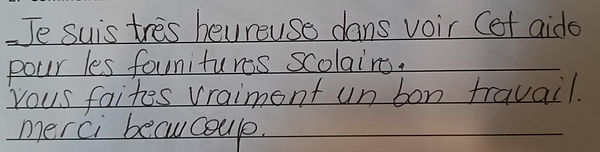 -Je suis très heureuse dans voir cet aide
pour les founitures scolaire.
vous faites vraiment un bon travail.
merci beaucoup.